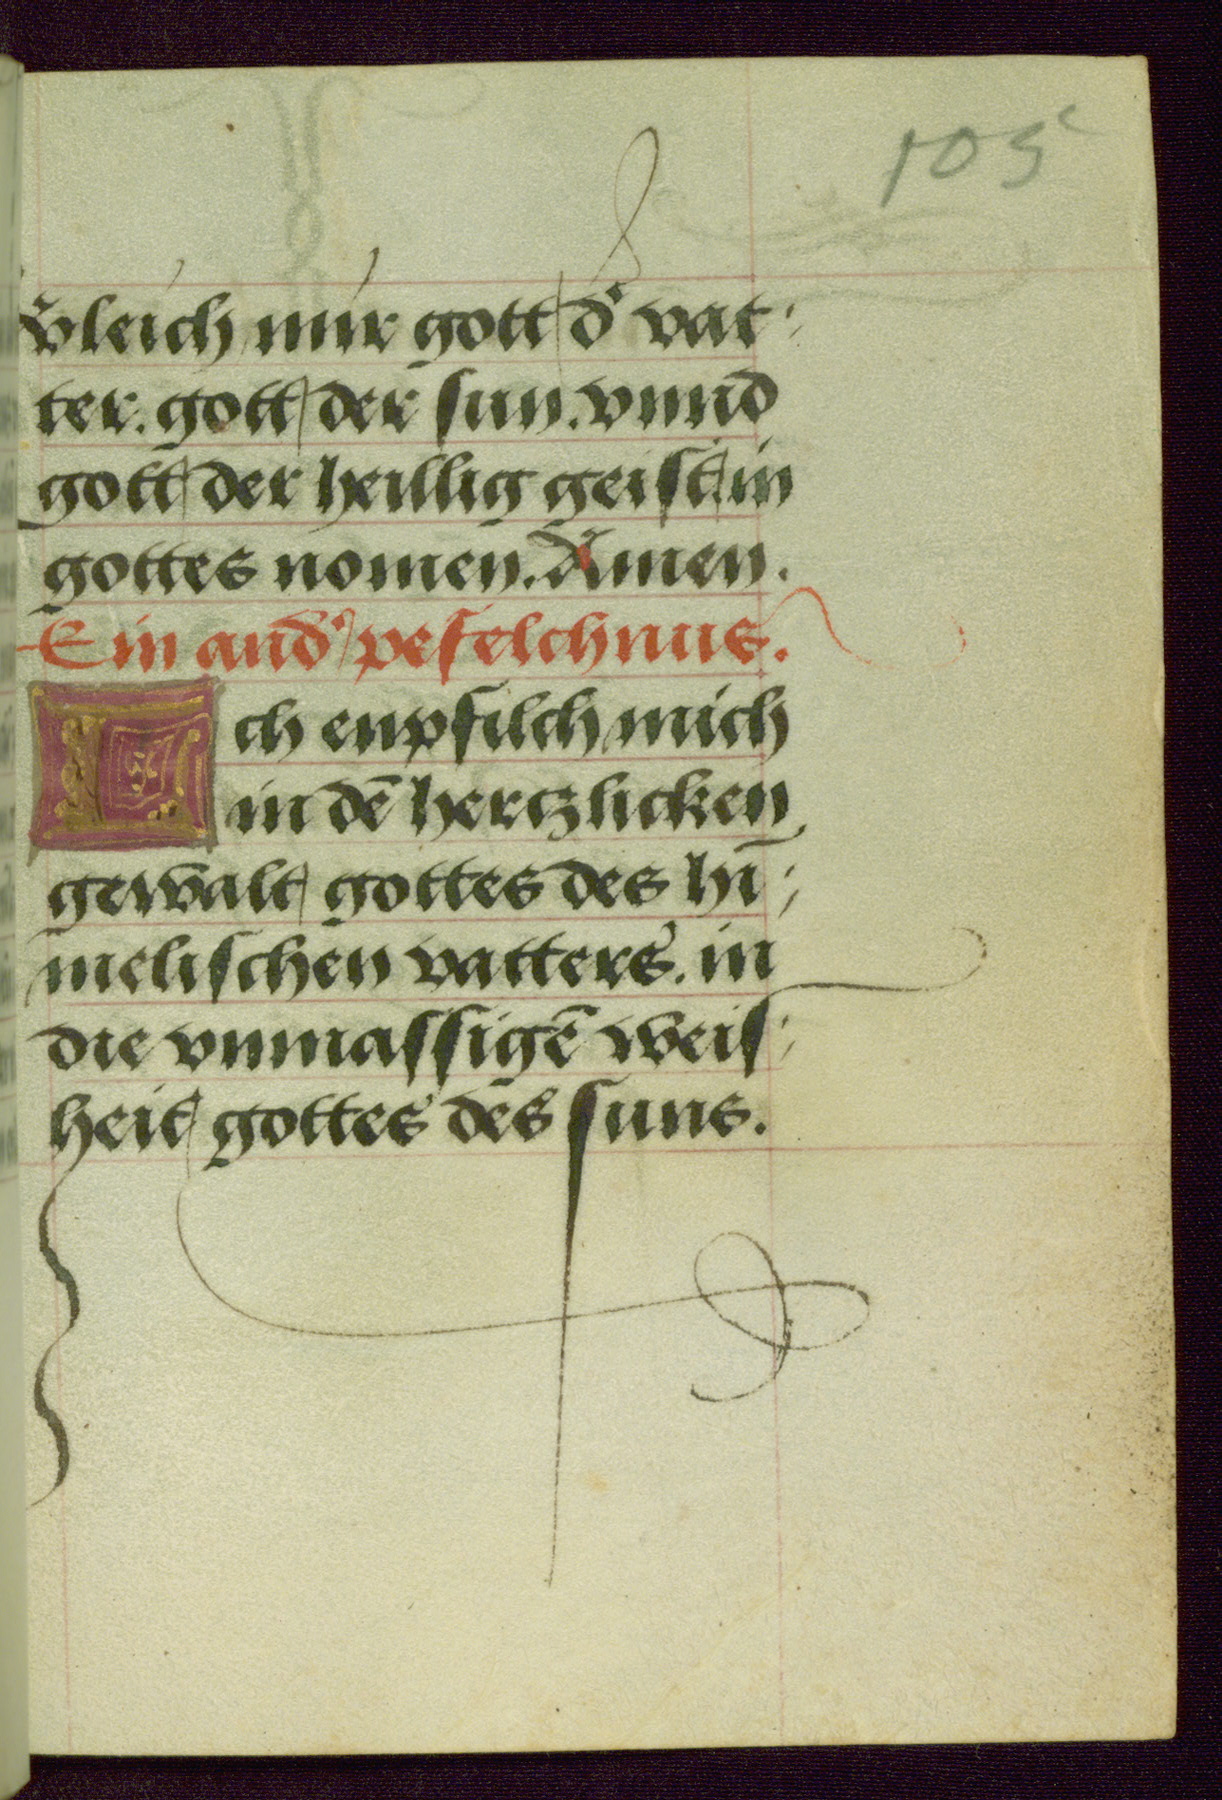 105
vͤleich mir gott dˀ vat:
ter. gott der sun. vnnd
gott der heillig geist in
gottes nomen. Amen.
Ein andˀ pefelchnus.
Ich enpfilch mich
in dē hertzlicken
gewalt gottes des hī:
melischen vatters. in
die vnmassigē weis:
heit gottes des suns.